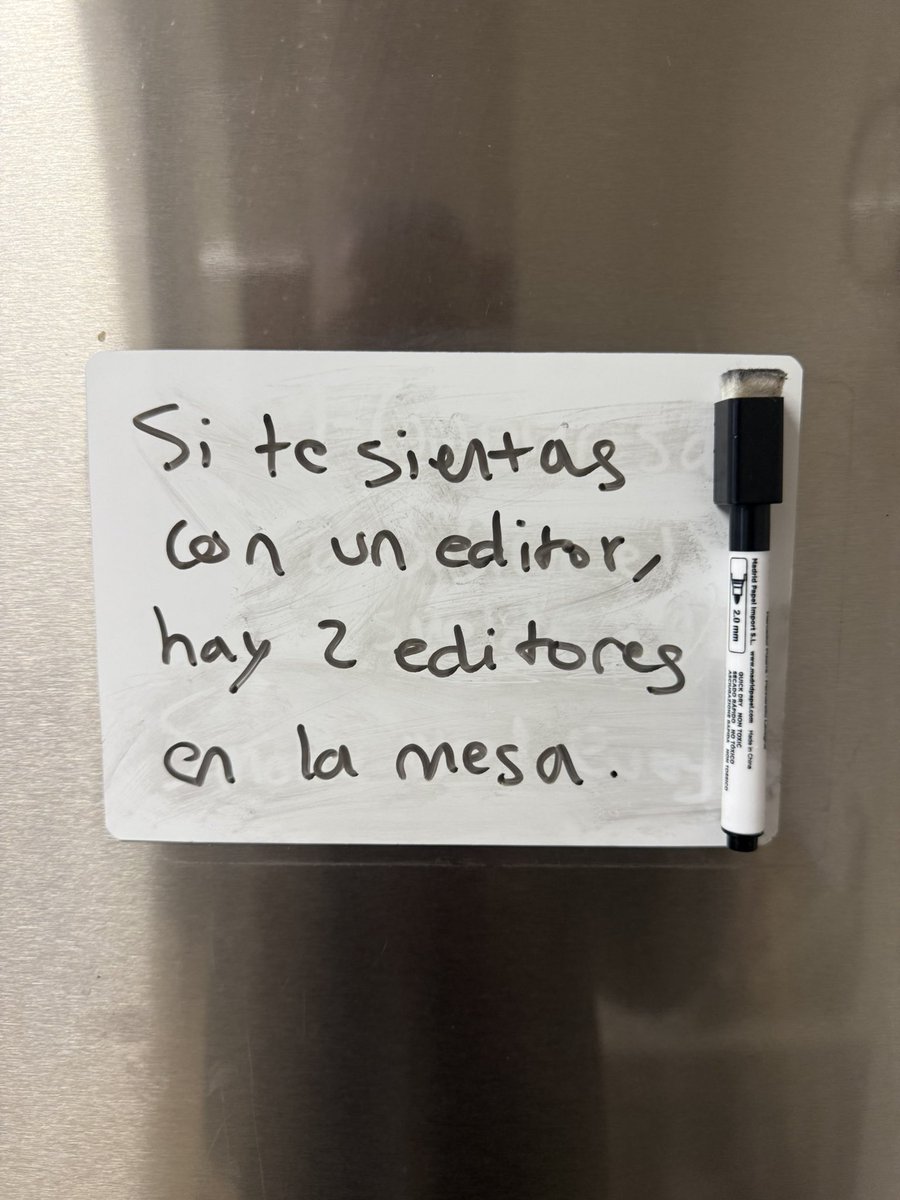 Si te sientas
con un editor,
hay 2 editores
en la mesa.
Madrid Papel Import S.L. www.madridpapel.com Made in China
2.0 mm
QUICK DRY NON TOXIC
SECADO RÁPIDO NO TÓXICO